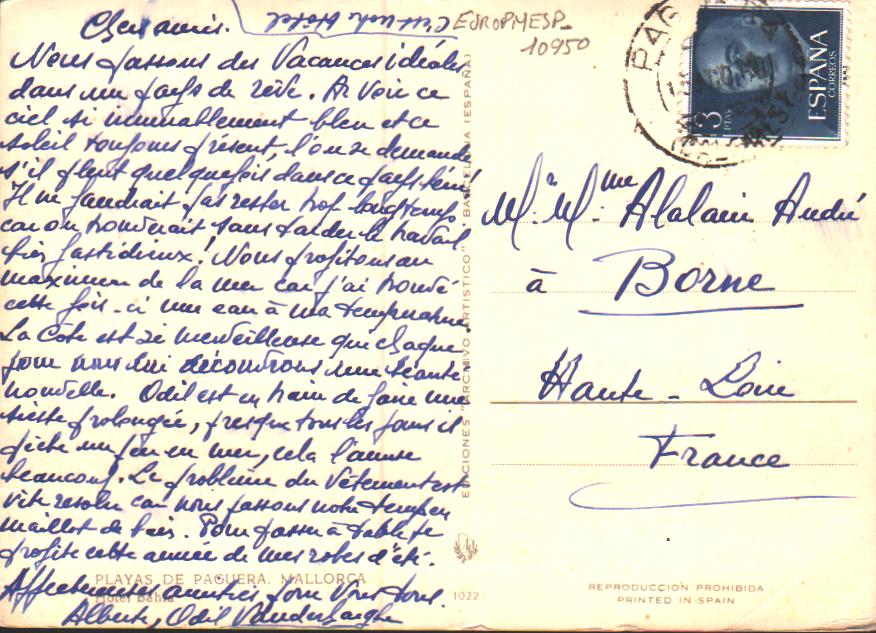 Chers amis.
C'est notre Hôtel
EUROPMESP_
10950
Nous passons des Vacances idéales
dans un pays de rêve. A voir ce
ciel si immuablement bleu et ce
soleil toujours présent, l'on se demande
s'il pleut quelquefois dans ce pays béni
Il ne faudrait pas rester trop longtemps
car on trouverait sans tarder le travail
bien fastidieux! Nous profitons au
maximum de la mer car j'ai trouvé
cette fois-ci une eau à ma température.
La Côte est si merveilleuse que chaque
jour nous lui découvrons une beauté
nouvelle. Odil est en train de faire une
sieste prolongée, presque tous les jours il
pêche un peu en mer, cela l'amuse
beaucoup. Le problème du vêtement est
vite résolu car nous passons notre temps en
maillot de bain. Pour passer à table je
profite cette année de mes robes d'été.
Affectueuses amitiés pour vous tous.
Alberte, Odil
PLAYAS DE PAGUERA. MALLORCA
Hotel Bahia
1022
EDICIONES "ARCHIVO ARTISTICO" BARCELONA (ESPAÑA)
PAG
3
PTAS
ESPAÑA
CORREOS
Mr. Mme Alalain André
à Borne
Haute-Loire
France
REPRODUCCION PROHIBIDA
PRINTED IN SPAIN